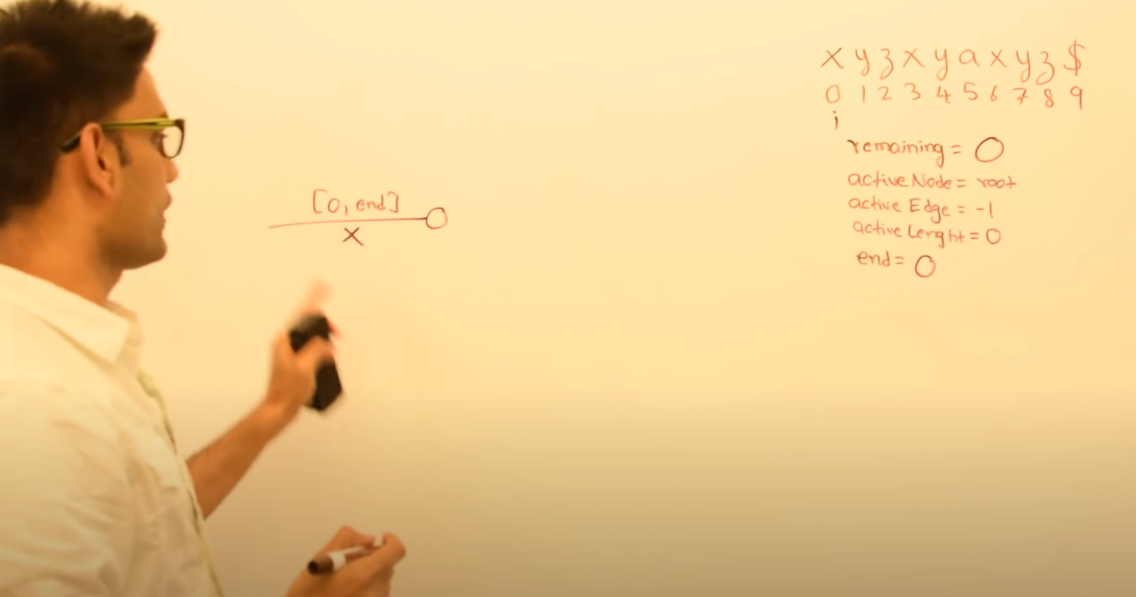 [0, end]
x
x y z x y a x y z $
0 1 2 3 4 5 6 7 8 9
i
remaining = 0
active Node = root
active Edge = -1
active Lenght = 0
end = 0